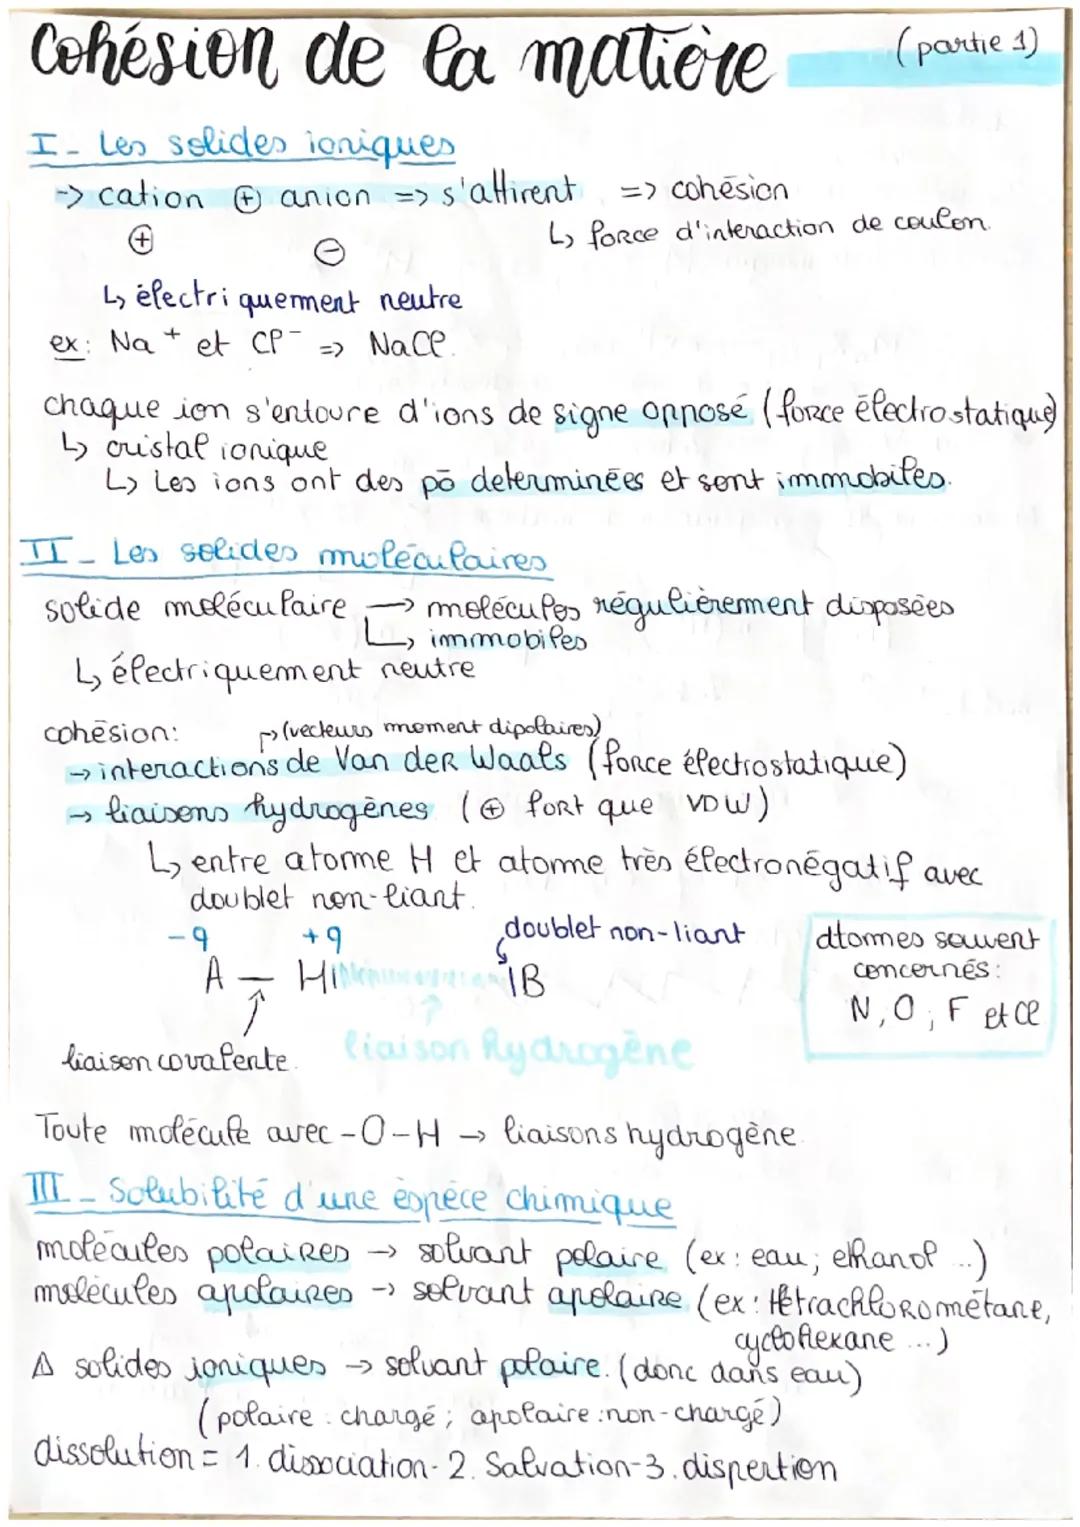 Cohésion de la matière (partie 1)
I - Les solides ioniques
-> cation ⊕ anion => s'attirent => cohésion
⊕ ⊖ ↳ force d'interaction de coulon.
↳ électriquement neutre
ex: Na⁺ et Cl⁻ => NaCl.
chaque ion s'entoure d'ions de signe opposé (force électrostatique)
↳ cristal ionique
↳ Les ions ont des pō determinées et sont immobiles.
II - Les solides moléculaires
solide moléculaire → molécules régulièrement disposées
↳ immobiles
↳ électriquement neutre
cohésion: ↱ (vecteurs moment dipolaires)
→ interactions de Van der Waals (force électrostatique)
→ liaisons hydrogènes (⊕ fort que VDW)
↳ entre atome H et atome très électronégatif avec
doublet non-liant.
-q +q doublet non-liant
A — H |B
liaison covalente. liaison hydrogène
atomes souvent
concernés:
N, O, F et Cl
Toute molécule avec -O-H → liaisons hydrogène
III - Solubilité d'une espèce chimique
molécules polaires → solvant polaire (ex: eau; ethanol ...)
molécules apolaires → solvant apolaire (ex: tétrachlorométane,
cyclohexane ...)
∆ solides ioniques → solvant polaire. (donc dans eau)
(polaire: chargé; apolaire: non-chargé)
dissolution = 1. dissociation - 2. Salvation - 3. dispertion